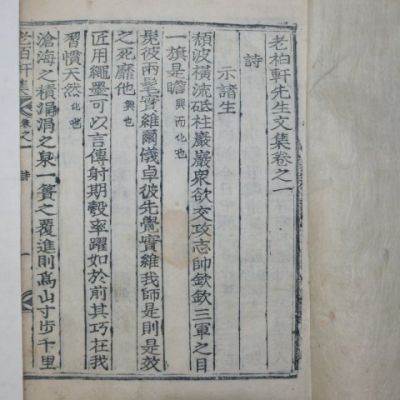 老柏軒先生文集卷之一
詩
示諸生
頹波橫流砥柱巖巖衆欲交攻志帥欽欽三軍之目
一旗是瞻興而比也
髧彼兩髦實維爾儀卓彼先覺實維我師是則是效
之死靡他興也
匠用繩墨可以言傳射期彀率躍如於前其巧在我
習慣天然比也
滄海之積涓涓之泉一簣之覆進則爲山寸步千里